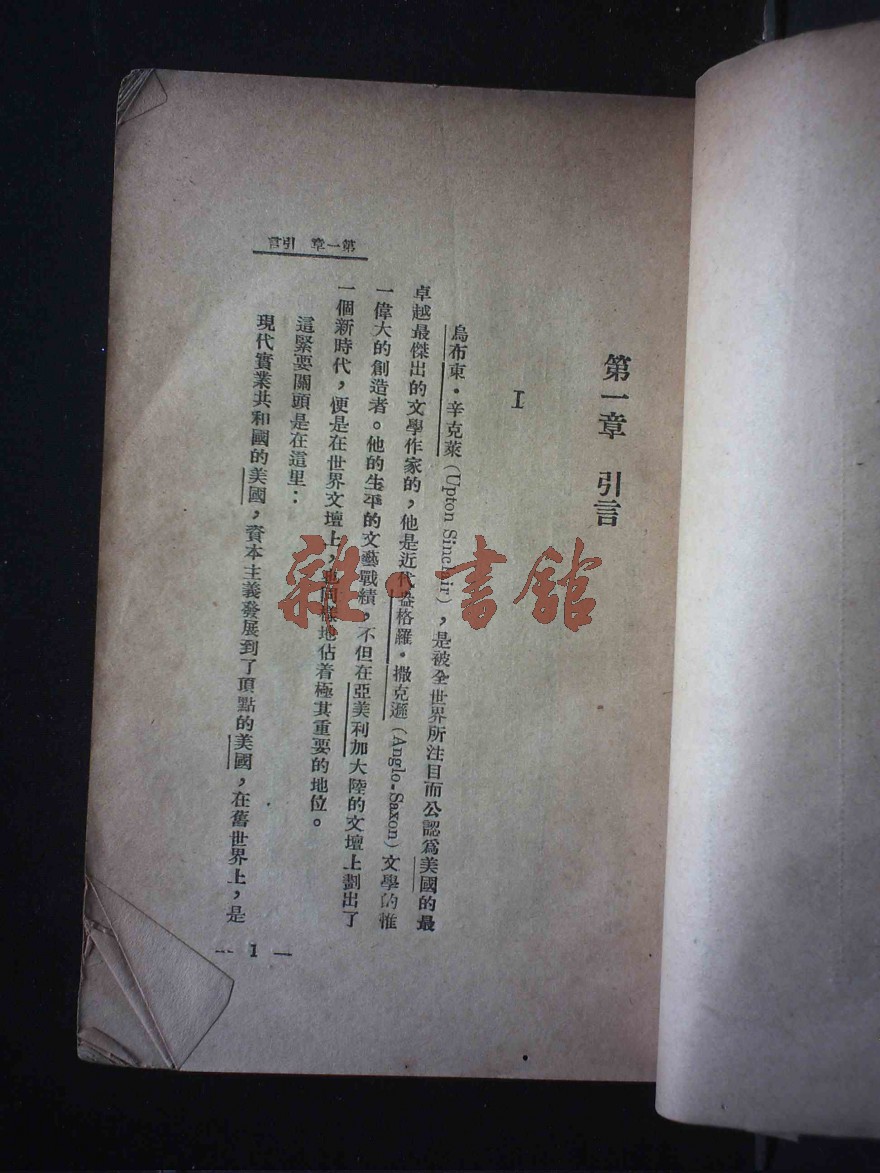 第一章　引言
I
烏布東・辛克萊（Upton Sinclair），是被全世界所注目而公認爲美國的最
卓越最傑出的文學作家的，他是近代盎格羅・撒克遜（Anglo-Saxon）文學的惟
一偉大的創造者。他的生平的文藝戰績，不但在亞美利加大陸的文壇上劃出了
一個新時代，便是在世界文壇上，更同樣地佔着極其重要的地位。
這緊要關頭是在這里：
現代實業共和國的美國，資本主義發展到了頂點的美國，在舊世界上，是
第一章　引言
— 1 —
雜・書館